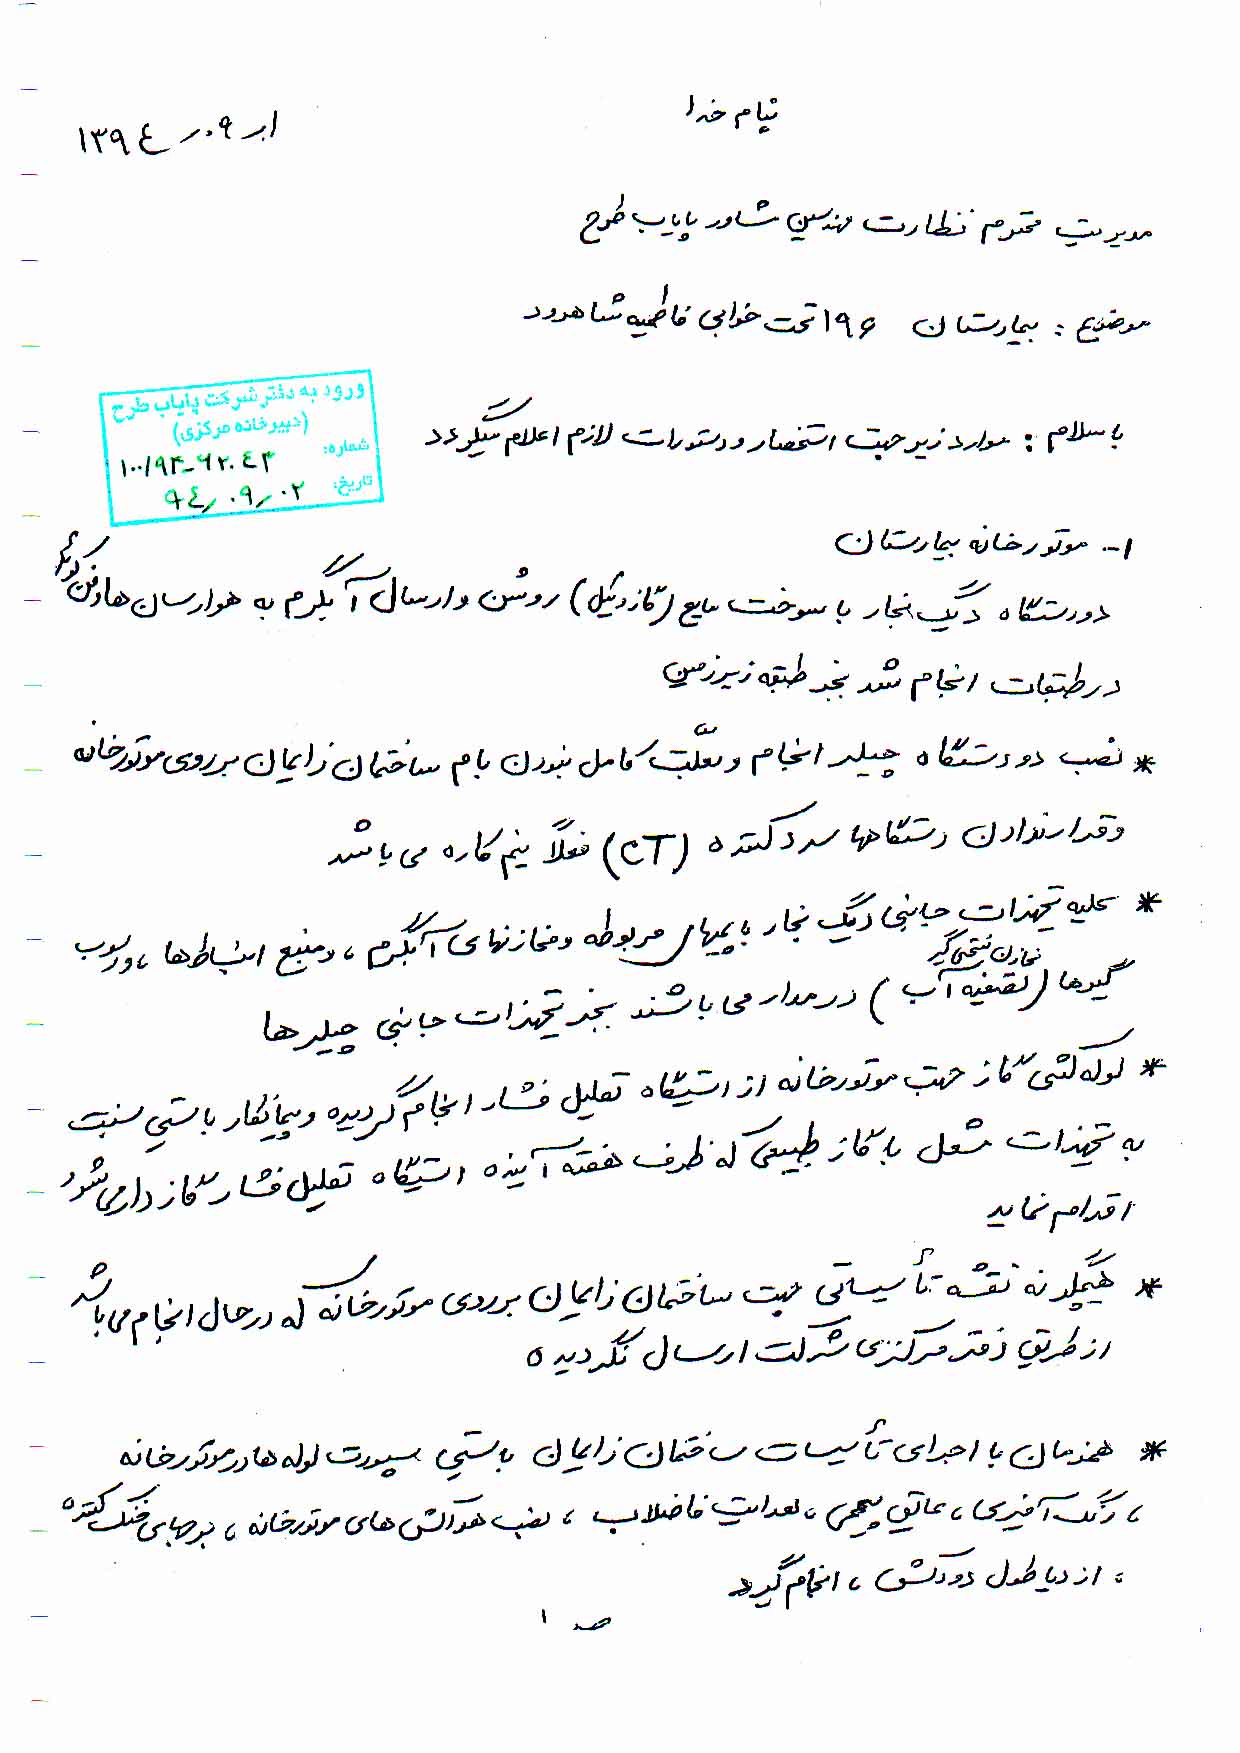 بنام خدا
۱۳۹٤/۰۹/۱
مدیریت محترم نظارت مهندسین مشاور پایاب طرح
موضوع : بیمارستان ۱۹۶ تختخوابی فاطمیه شاهرود
ورود به دفتر شرکت پایاب طرح
(دبیرخانه مرکزی)
شماره: ۱۰۰/۹۴-۶۲۰٤۳
تاریخ: ۹٤/۰۹/۰۲
با سلام : موارد زیر جهت استحضار و دستورات لازم اعلام میگردد
۱- موتورخانه بیمارستان
دو دستگاه دیگ بخار با سوخت مایع (گازوئیل) روشن و ارسال آبگرم به هوارسان ها و فن کویل
در طبقات انجام شد بجز طبقه زیرزمین
* نصب دو دستگاه چیلر انجام و بعلّت کامل نبودن بام ساختمان زایمان بر روی موتورخانه
و قرار ندادن دستگاهها سرد کننده (CT) فعلاً نیم کاره می باشد
* کلیه تجهیزات جانبی دیگ بخار با پمپهای مربوطه و مخازنهای آبگرم ، و منبع انبساط ها ، و رسوب
گیرها (تصفیه آب مخازن سختی گیر) در مدار می باشند بجز تجهیزات جانبی چیلرها
* لوله کشی گاز جهت موتورخانه از ایستگاه تقلیل فشار انجام گردیده و پیمانکار بایستی نسبت
به تجهیزات مشعل با گاز طبیعی که ظرف هفته آینده ایستگاه تقلیل فشار گاز دار می شود
اقدام نماید
* هیچگونه نقشه تأسیساتی جهت ساختمان زایمان بر روی موتورخانه که در حال انجام می باشد
از طریق دفتر مرکزی شرکت ارسال نگردیده
* همزمان با اجرای تأسیسات ساختمان زایمان بایستی سپورت لوله ها در موتورخانه
، رنگ آمیزی ، عایق پیچی ، هدایت فاضلاب ، نصب هواکش های موتورخانه ، برجهای خنک کننده
، ازدیاد طول دودکش ، انجام گیرد
ص ۱